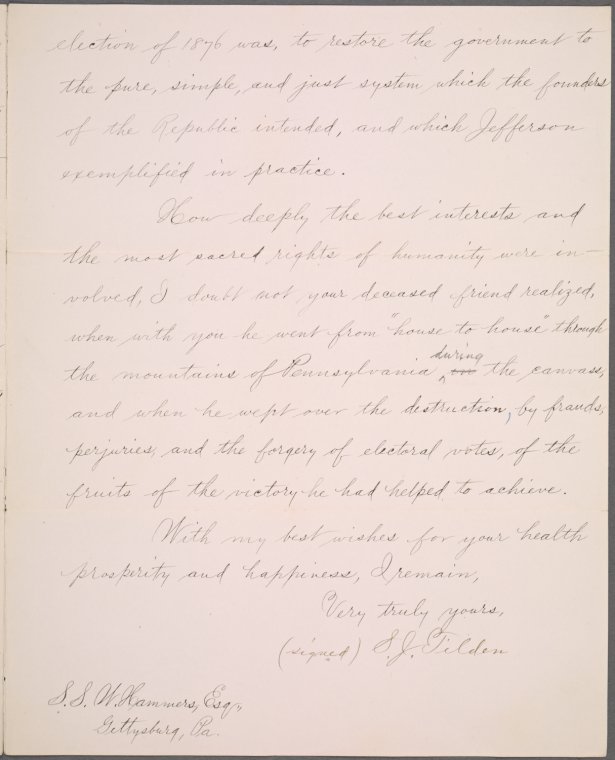 election of 1876 was, to restore the government to
the pure, simple, and just system which the founders
of the Republic intended, and which Jefferson
exemplified in practice.
How deeply the best interests and
the most sacred rights of humanity were in-
volved, I doubt not your deceased friend realized,
when with you he went from "house to house" through
the mountains of Pennsylvania during on the canvass,
and when he wept over the destruction, by frauds,
perjuries, and the forgery of electoral votes, of the
fruits of the victory he had helped to achieve.
With my best wishes for your health
prosperity and happiness, I remain,
Very truly yours,
(signed) S. J. Tilden
S. S. W. Hammers, Esq.,
Gettysburg, Pa.